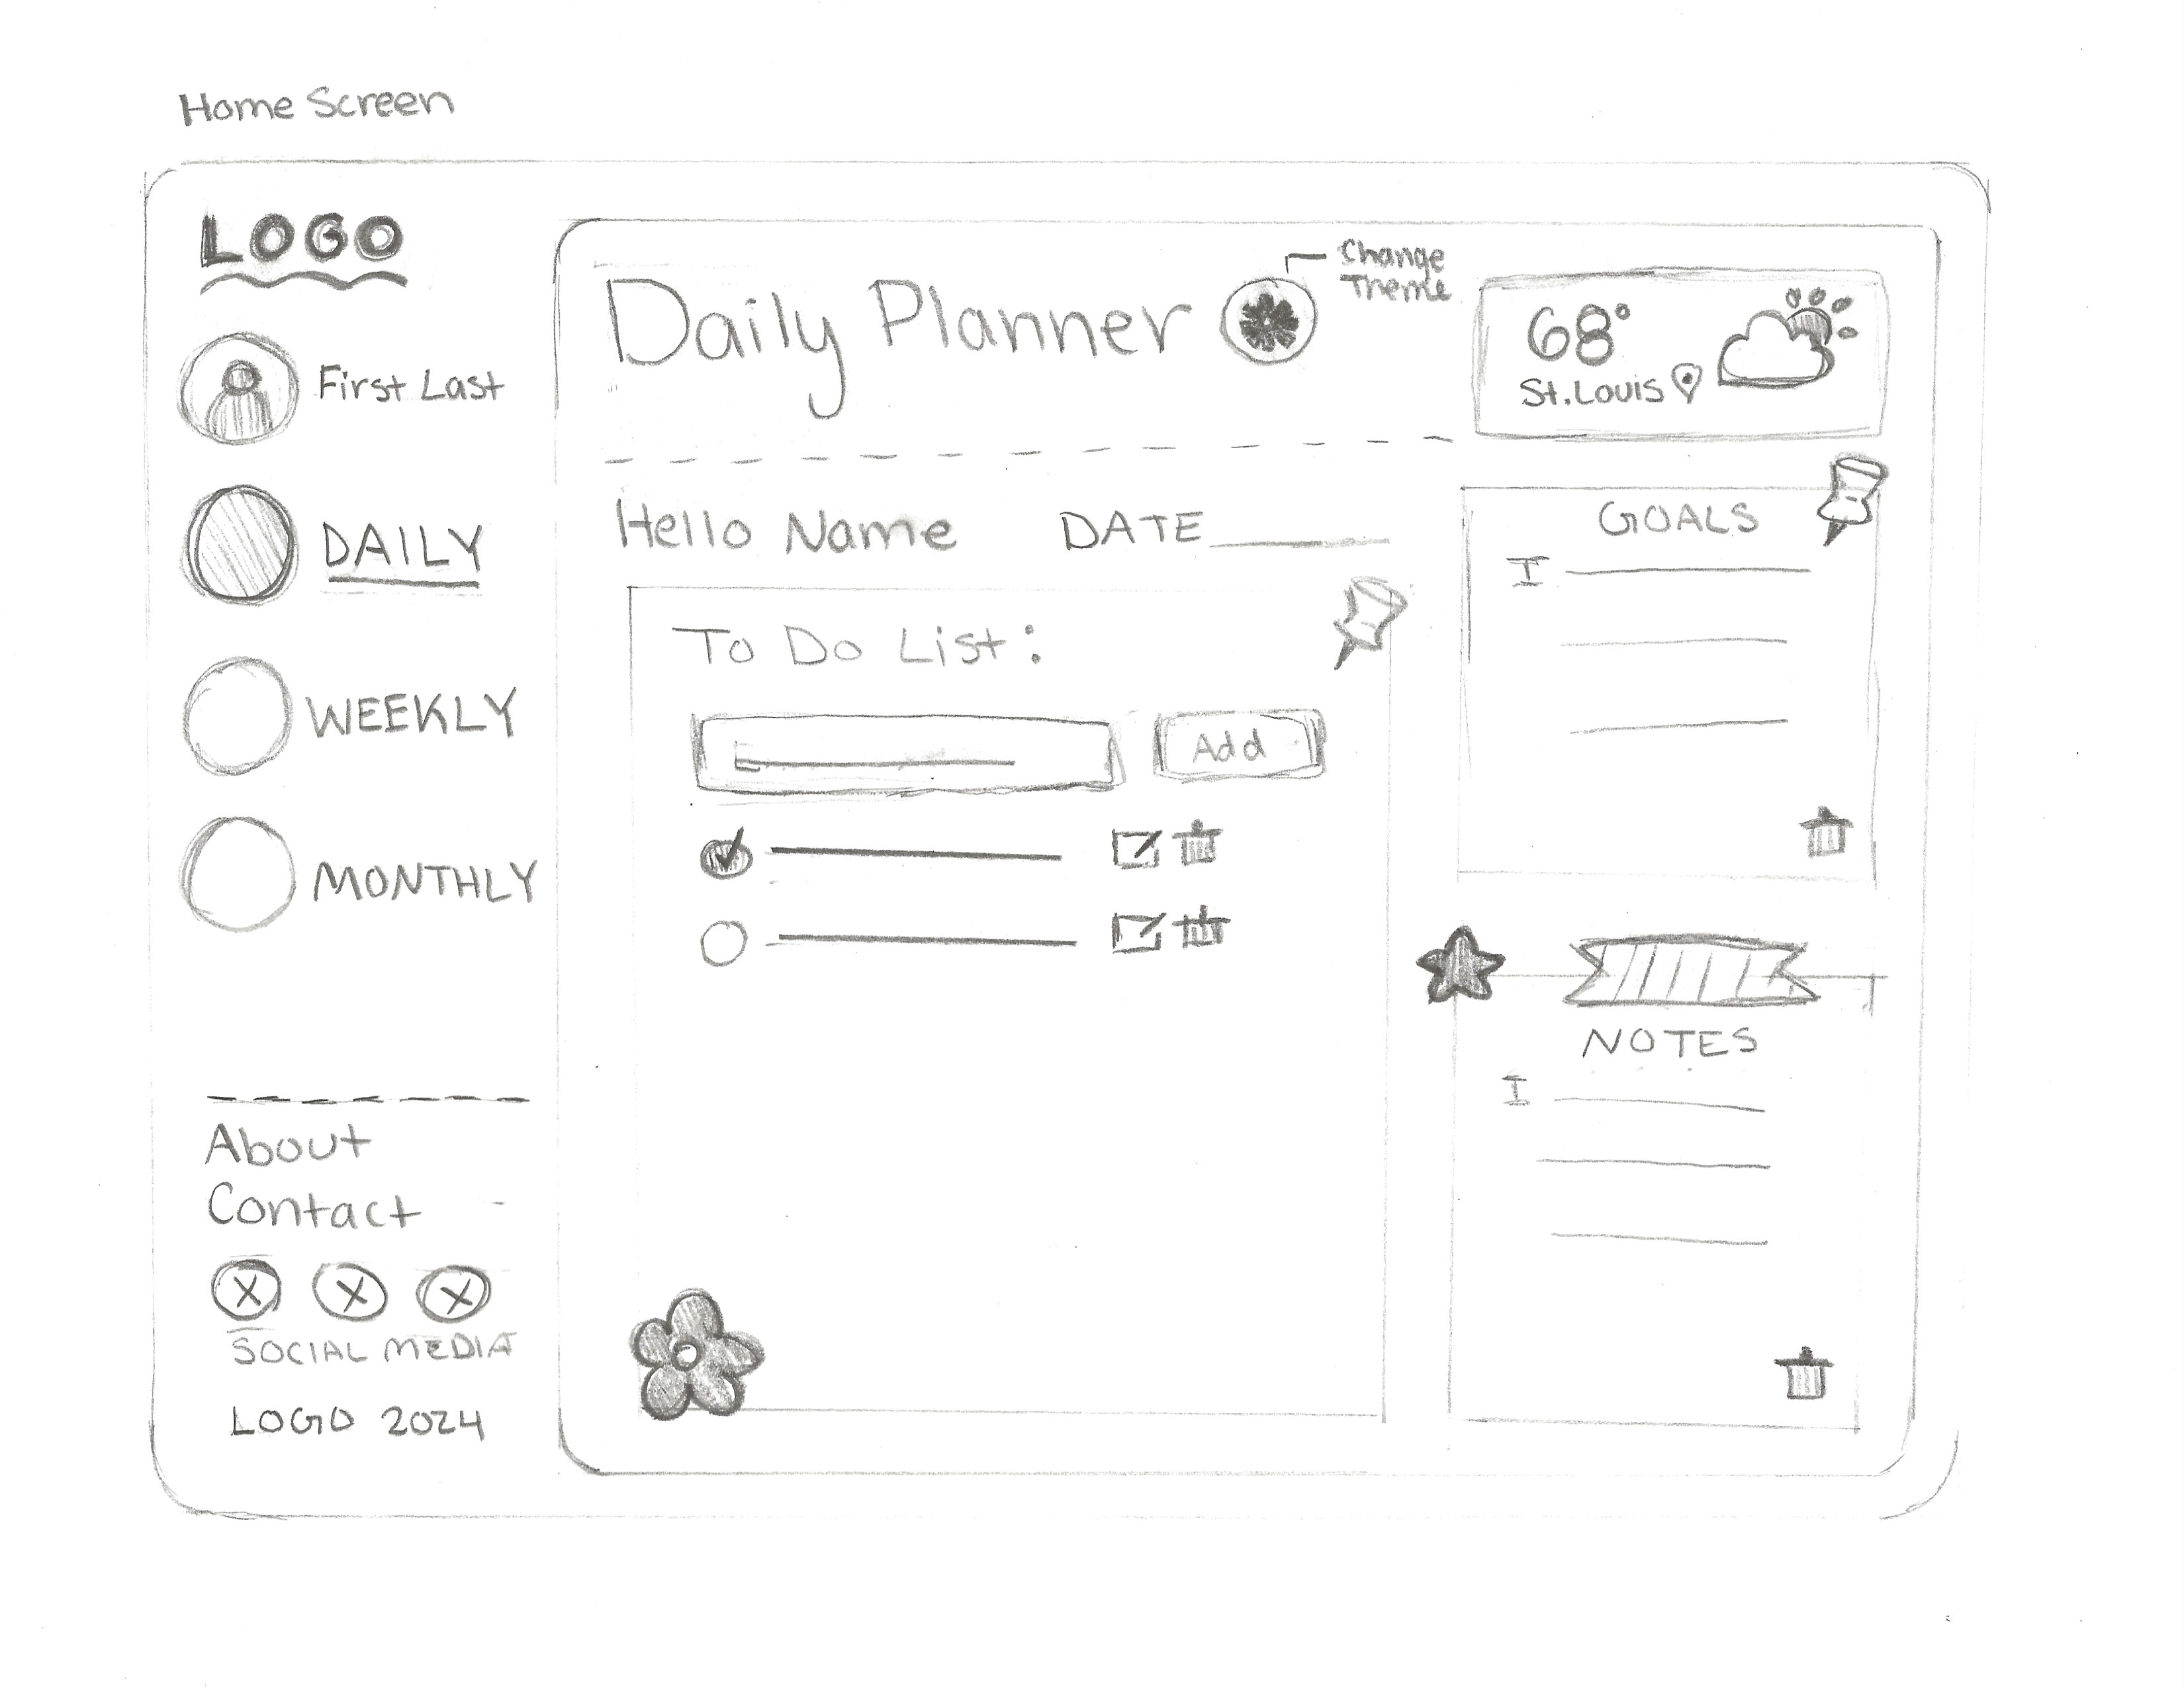 Home Screen
LOGO
First Last
DAILY
WEEKLY
MONTHLY
About
Contact
X X X
SOCIAL MEDIA
LOGO 2024
Daily Planner
Change
Theme
68°
St. Louis
Hello Name DATE
To Do List:
Add
GOALS
I
NOTES
I